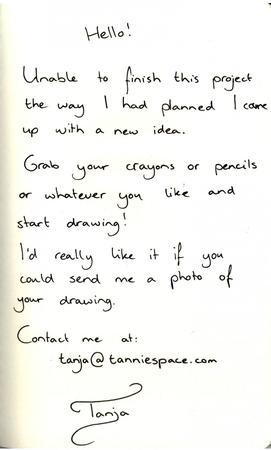 Hello!
Unable to finish this project
the way I had planned I came
up with a new idea.
Grab your crayons or pencils
or whatever you like and
start drawing!
I'd really like it if you
could send me a photo of
your drawing.
Contact me at:
tanja@tanniespace.com
Tanja